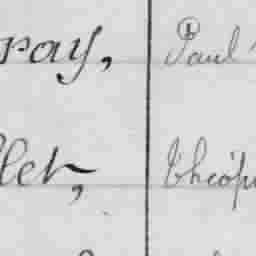 ray, Paul
llet, Théop